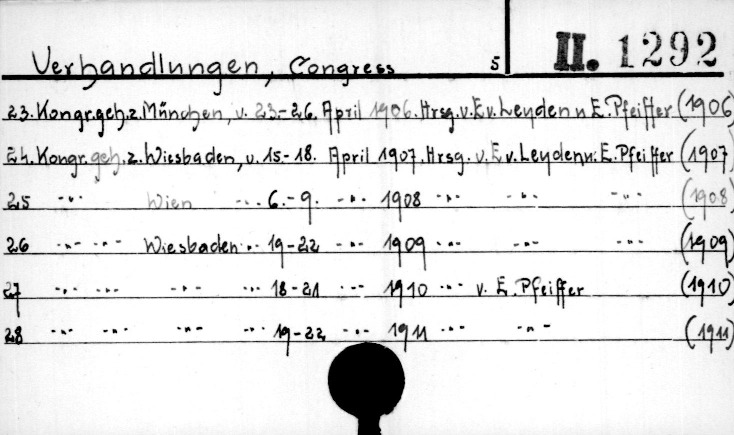 Verhandlungen, Congress 5 II. 1292
23. Kongr. geh. z. München, v. 23.-26. April 1906. Hrsg. v. E. v. Leyden u E. Pfeiffer (1906)
24. Kongr. geh. z. Wiesbaden, v. 15.-18. April 1907. Hrsg. v. E v. Leyden u. E. Pfeiffer (1907)
25 -"- Wien -"- 6.-9. -"- 1908 -"- -"- -"- (1908)
26 -"- -"- Wiesbaden -"- 19-22 -"- 1909 -"- -"- -"- (1909)
27 -"- -"- -"- -"- 18-21 -"- 1910 -"- v. E. Pfeiffer (1910)
28 -"- -"- -"- -"- 19-22 -"- 1911 -"- -"- (1911)